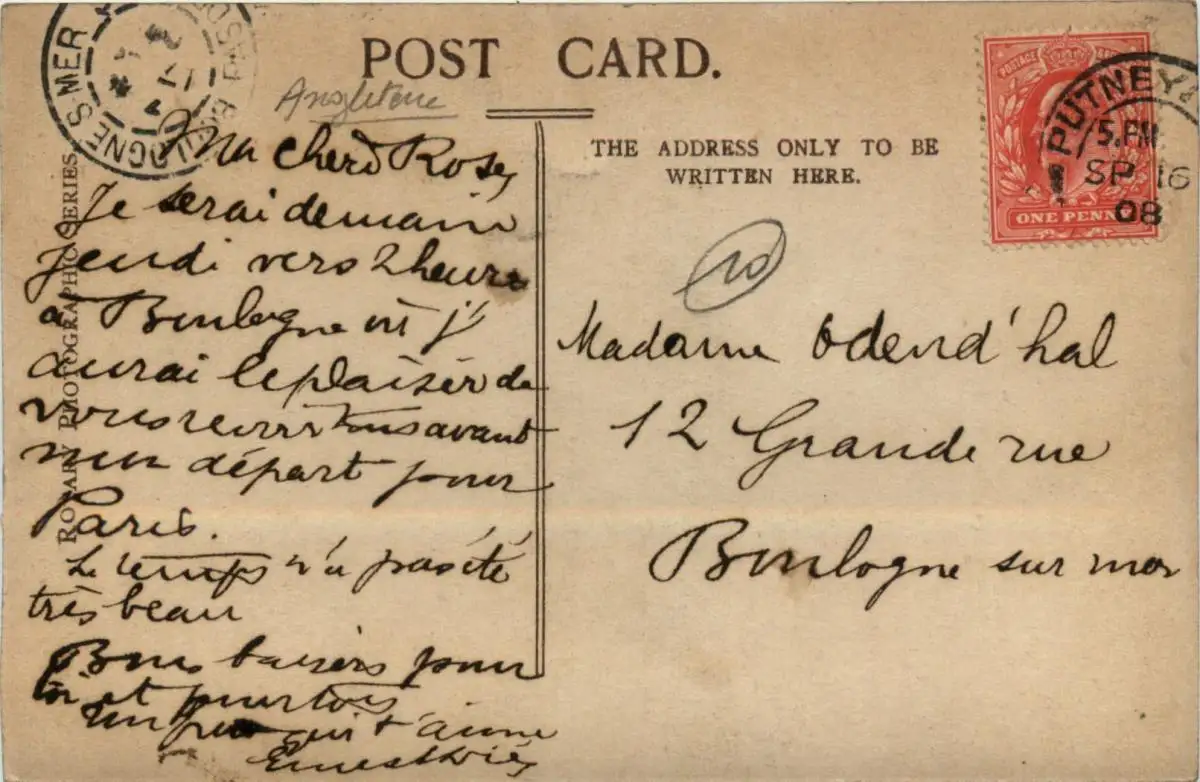 POST CARD.
Angleterre
THE ADDRESS ONLY TO BE
WRITTEN HERE.
ROTARY PHOTOGRAPHIC SERIES
BOULOGNE S MER
PUTNEY
5. PM
SP 16
08
POSTAGE
ONE PENNY
Ma chere Rose,
Je serai demain
jeudi vers 2 heures
à Boulogne où j'
aurai le plaisir de
vous revoir tous avant
mon départ pour
Paris.
Le temps n'a pas été
très beau
Bons baisers pour
toi et pour tous
Ernest
Madame Odend'hal
12 Grande rue
Boulogne sur mer